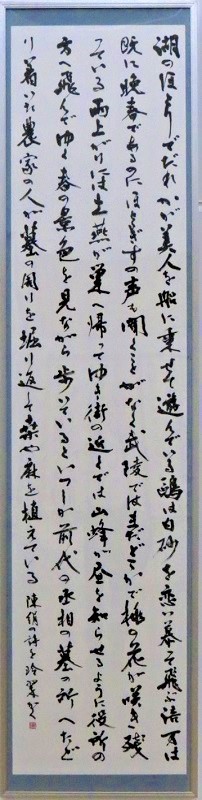 湖のほとりでだれかが美人を船に乗せて遊んでいる鴎は白砂を恋い慕って飛ぶ
既に晩春であるのにほととぎすの声も聞くことがなく武陵ではまだどこかで桃の花が咲き残
っている雨上がりには土燕が巣へ帰ってゆき街の近くでは山蜂が昼を知らせるように役所の
方へ飛んでゆく春の景色を見ながら歩いているといつしか前代の丞相の墓の所へたど
り着いた農家の人が墓の周りを掘り返して桑や麻を植えている の詩を